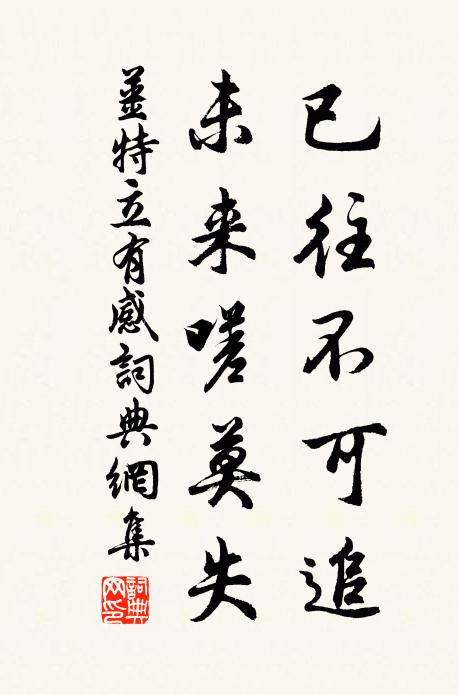 已往不可追
未来嗟莫失
姜特立有感詞典網集
詞典網印